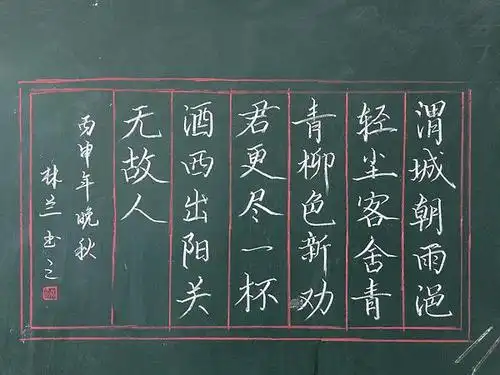 渭城朝雨浥
轻尘客舍青
青柳色新劝
君更尽一杯
酒西出阳关
无故人
丙申年晚秋
林兰书之